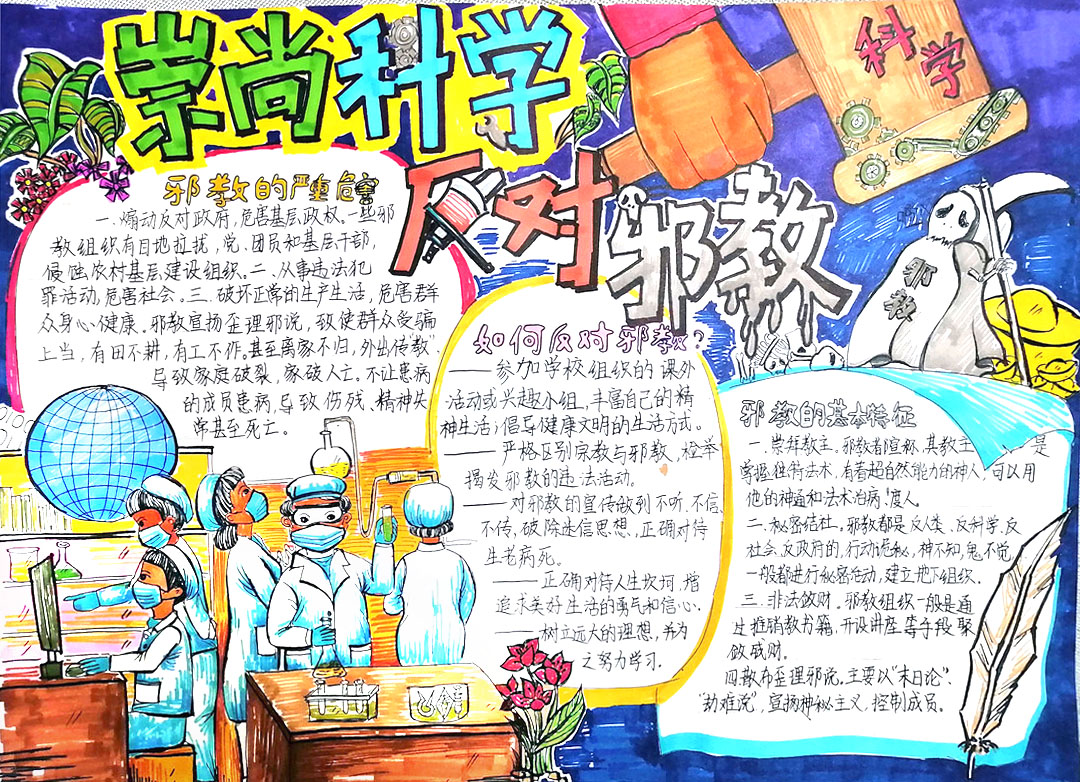 崇尚科学
反对邪教
科学
邪教
邪教的严重危害
一.煽动反对政府,危害基层政权。一些邪
教组织有目地拉拢,党、团员和基层干部,
侵蚀农村基层建设组织。二、从事违法犯
罪活动,危害社会。三.破坏正常的生产生活,危害群
众身心健康。邪教宣扬歪理邪说,致使群众受骗
上当,有田不耕,有工不作。甚至离家不归,外出传教”
导致家庭破裂,家破人亡。不让患病
的成员患病,导致伤残、精神失
常甚至死亡。
如何反对邪教?
——参加学校组织的课外
活动或兴趣小组,丰富自己的精
神生活;倡导健康文明的生活方式。
——严格区别宗教与邪教,检举
揭发邪教的违法活动。
——对邪教的宣传做到不听、不信、
不传,破除迷信思想,正确对待
生老病死。
——正确对待人生坎坷,增
追求美好生活的勇气和信心.
——树立远大的理想,并为
之努力学习.
邪教的基本特征
一.崇拜教主。邪教都宣称,其教主是
掌握独特法术,有着超自然能力的神人,可以用
他的神通和法术治病,度人。
二.秘密结社。邪教都是反人类、反科学、反
社会、反政府的,行动诡秘,神不知,鬼不觉
一般都进行秘密活动,建立地下组织.
三.非法敛财。邪教组织一般是通
过推销教书籍,开设讲座等手段聚
敛钱财。
四.散布歪理邪说,主要以“末日论”、
“劫难说”,宣扬神秘主义,控制成员。